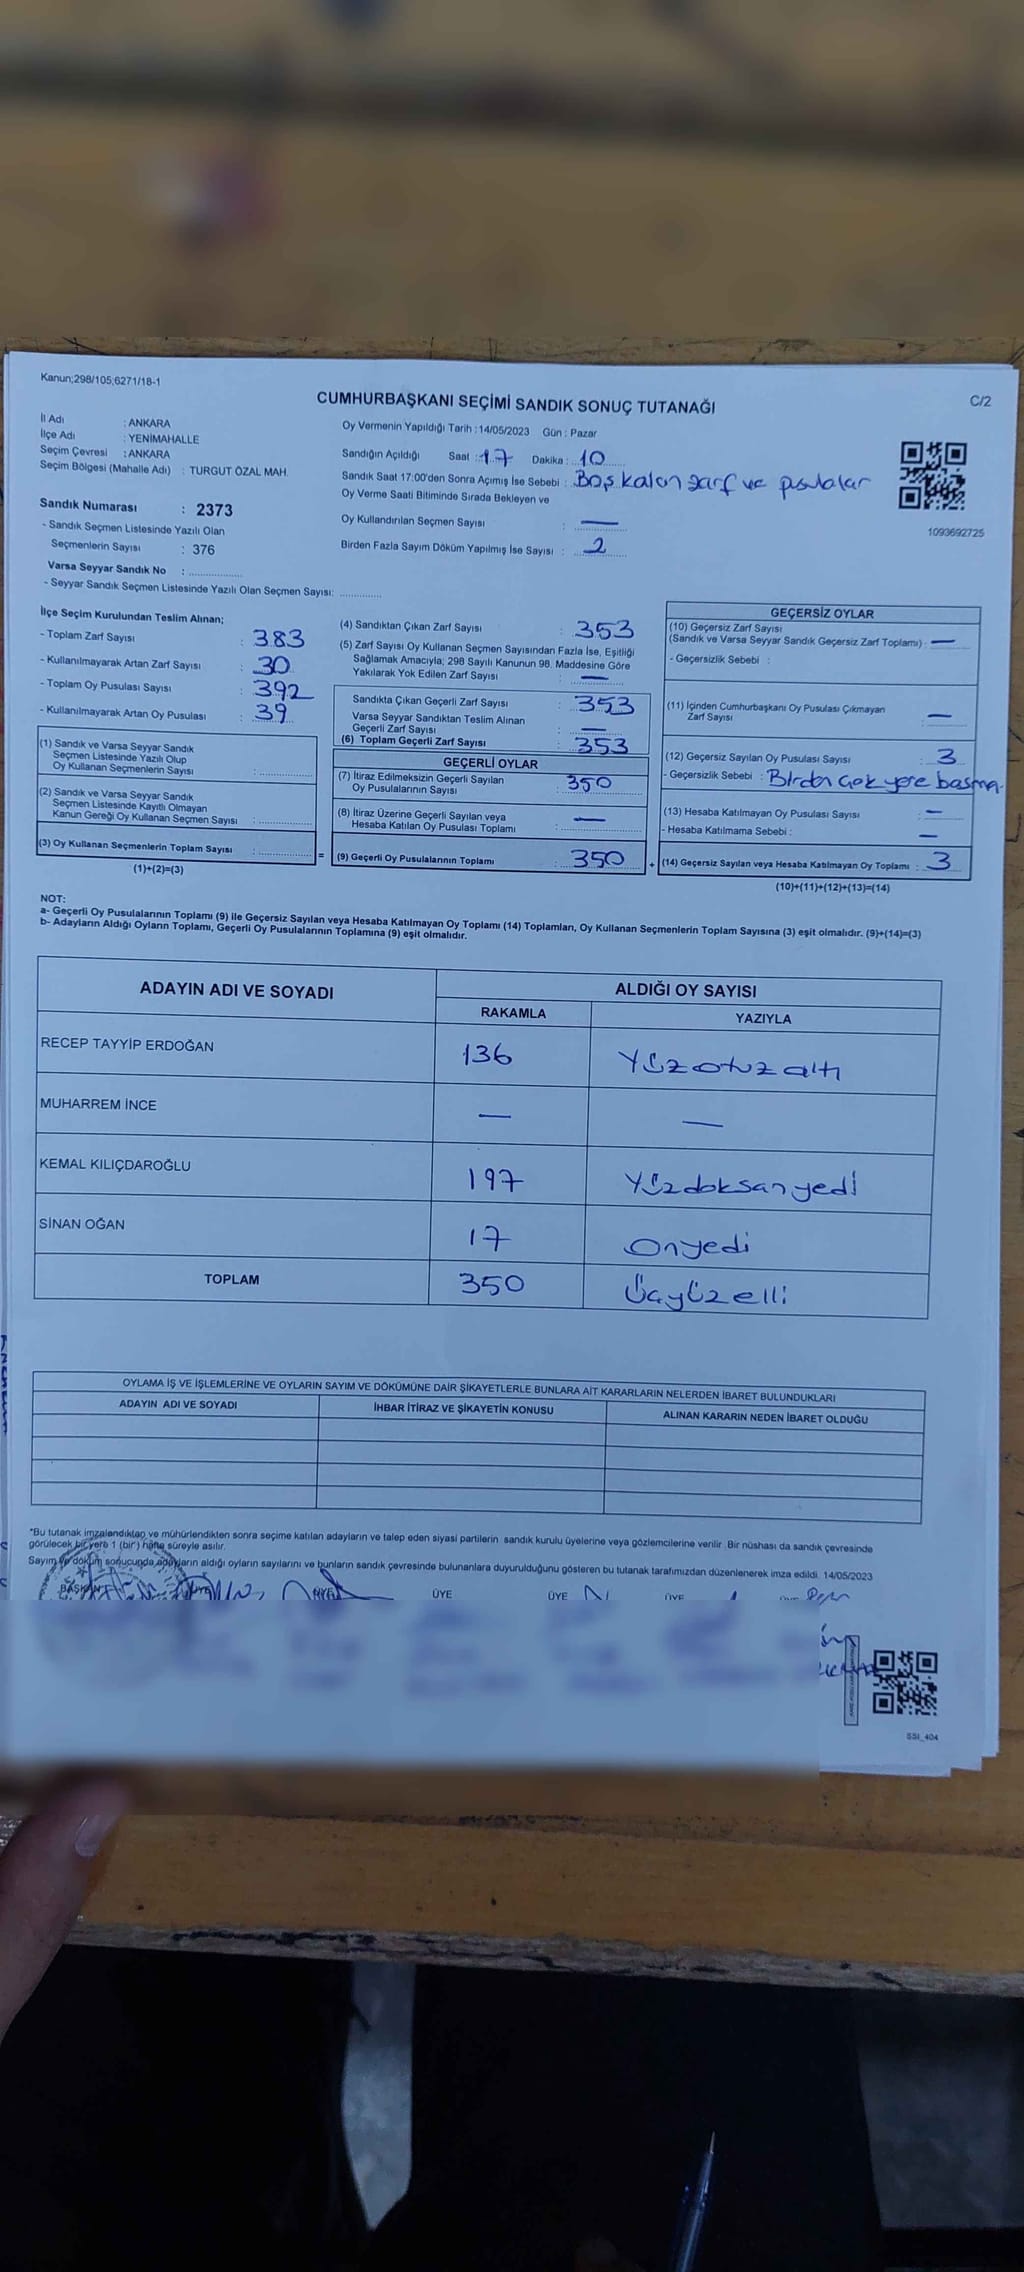 Kanun;298/105;6271/18-1
CUMHURBAŞKANI SEÇİMİ SANDIK SONUÇ TUTANAĞI
C/2
İl Adı : ANKARA
İlçe Adı : YENİMAHALLE
Seçim Çevresi : ANKARA
Seçim Bölgesi (Mahalle Adı) : TURGUT ÖZAL MAH.
Sandık Numarası : 2373
- Sandık Seçmen Listesinde Yazılı Olan
Seçmenlerin Sayısı : 376
Varsa Seyyar Sandık No : ..................
- Seyyar Sandık Seçmen Listesinde Yazılı Olan Seçmen Sayısı: ..............
Oy Vermenin Yapıldığı Tarih :14/05/2023 Gün : Pazar
Sandığın Açıldığı Saat : 17 Dakika : 10
Sandık Saat 17:00'den Sonra Açımış İse Sebebi : Boş kalan zarf ve pusulalar
Oy Verme Saati Bitiminde Sırada Bekleyen ve
Oy Kullandırılan Seçmen Sayısı : —
Birden Fazla Sayım Döküm Yapılmış İse Sayısı : 2
1093692725
İlçe Seçim Kurulundan Teslim Alınan;
- Toplam Zarf Sayısı : 383
- Kullanılmayarak Artan Zarf Sayısı : 30
- Toplam Oy Pusulası Sayısı : 392
- Kullanılmayarak Artan Oy Pusulası : 39
(1) Sandık ve Varsa Seyyar Sandık
Seçmen Listesinde Yazılı Olup
Oy Kullanan Seçmenlerin Sayısı : ..............
(2) Sandık ve Varsa Seyyar Sandık
Seçmen Listesinde Kayıtlı Olmayan
Kanun Gereği Oy Kullanan Seçmen Sayısı : ..............
(3) Oy Kullanan Seçmenlerin Toplam Sayısı : ..............
(1)+(2)=(3)
=
(4) Sandıktan Çıkan Zarf Sayısı : 353
(5) Zarf Sayısı Oy Kullanan Seçmen Sayısından Fazla İse, Eşitliği
Sağlamak Amacıyla; 298 Sayılı Kanunun 98. Maddesine Göre
Yakılarak Yok Edilen Zarf Sayısı : —
Sandıkta Çıkan Geçerli Zarf Sayısı : 353
Varsa Seyyar Sandıktan Teslim Alınan
Geçerli Zarf Sayısı : —
(6) Toplam Geçerli Zarf Sayısı : 353
GEÇERLİ OYLAR
(7) İtiraz Edilmeksizin Geçerli Sayılan
Oy Pusulalarının Sayısı : 350
(8) İtiraz Üzerine Geçerli Sayılan veya
Hesaba Katılan Oy Pusulası Toplamı : —
(9) Geçerli Oy Pusulalarının Toplamı : 350
+
GEÇERSİZ OYLAR
(10) Geçersiz Zarf Sayısı
(Sandık ve Varsa Seyyar Sandık Geçersiz Zarf Toplamı) : —
- Geçersizlik Sebebi :
(11) İçinden Cumhurbaşkanı Oy Pusulası Çıkmayan
Zarf Sayısı : —
(12) Geçersiz Sayılan Oy Pusulası Sayısı : 3
- Geçersizlik Sebebi : Birden çok yere basma
(13) Hesaba Katılmayan Oy Pusulası Sayısı : —
- Hesaba Katılmama Sebebi : —
(14) Geçersiz Sayılan veya Hesaba Katılmayan Oy Toplamı : 3
(10)+(11)+(12)+(13)=(14)
NOT:
a- Geçerli Oy Pusulalarının Toplamı (9) ile Geçersiz Sayılan veya Hesaba Katılmayan Oy Toplamı (14) Toplamları, Oy Kullanan Seçmenlerin Toplam Sayısına (3) eşit olmalıdır. (9)+(14)=(3)
b- Adayların Aldığı Oyların Toplamı, Geçerli Oy Pusulalarının Toplamına (9) eşit olmalıdır.
ADAYIN ADI VE SOYADI
ALDIĞI OY SAYISI
RAKAMLA YAZIYLA
RECEP TAYYİP ERDOĞAN 136 Yüzotuzaltı
MUHARREM İNCE — —
KEMAL KILIÇDAROĞLU 197 Yüzdoksanyedi
SİNAN OĞAN 17 Onyedi
TOPLAM 350 Üçyüzelli
OYLAMA İŞ VE İŞLEMLERİNE VE OYLARIN SAYIM VE DÖKÜMÜNE DAİR ŞİKAYETLERLE BUNLARA AİT KARARLARIN NELERDEN İBARET BULUNDUKLARI
ADAYIN ADI VE SOYADI İHBAR İTİRAZ VE ŞİKAYETİN KONUSU ALINAN KARARIN NEDEN İBARET OLDUĞU
*Bu tutanak imzalandıktan ve mühürlendikten sonra seçime katılan adayların ve talep eden siyasi partilerin sandık kurulu üyelerine veya gözlemcilerine verilir. Bir nüshası da sandık çevresinde
görülecek bir yere 1 (bir) hafta süreyle asılır.
Sayım ve döküm sonucunda adayların aldığı oyların sayılarını ve bunların sandık çevresinde bulunanlara duyurulduğunu gösteren bu tutanak tarafımızdan düzenlenerek imza edildi. 14/05/2023
BAŞKAN ÜYE ÜYE ÜYE ÜYE ÜYE
SSI_404